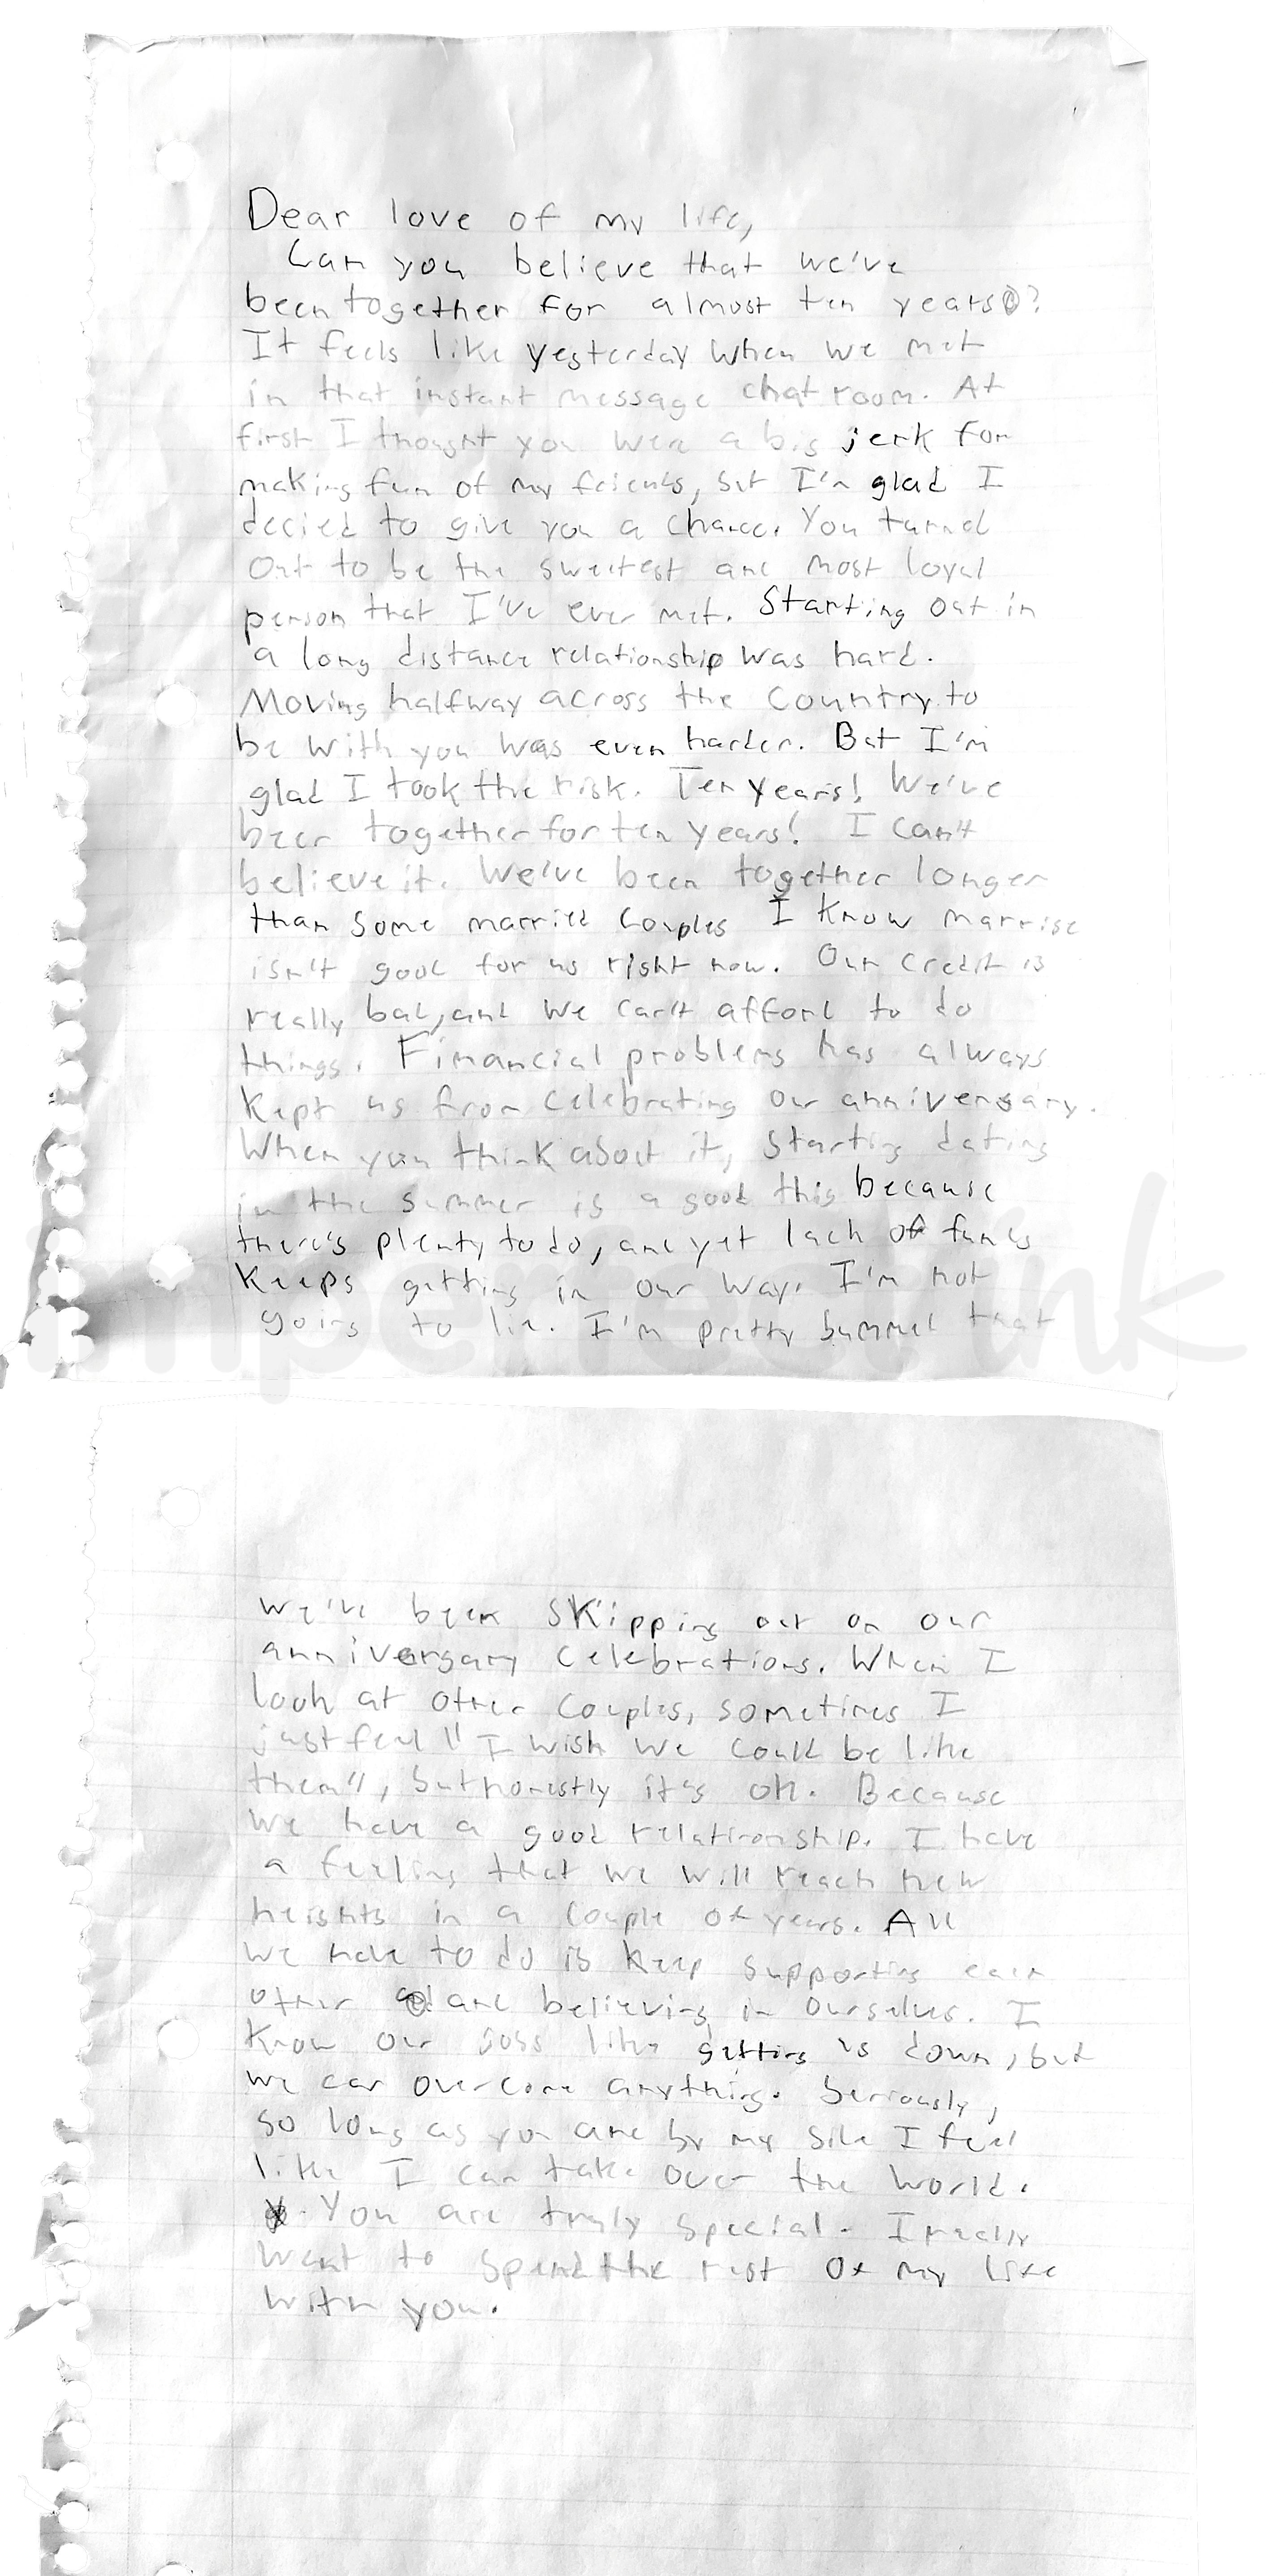 Dear love of my life,
Can you believe that we've
been together for almost ten years?
It feels like yesterday when we met
in that instant message chat room. At
first I thought you were a big jerk for
making fun of my friends, but I'm glad I
decied to give you a chance. You turned
out to be the sweetest and most loyal
person that I've ever met. Starting out in
a long distance relationship was hard.
Moving halfway across the country to
be with you was even harder. But I'm
glad I took the risk. Ten years! We've
been together for ten years! I can't
believe it. We've been together longer
than some married couples I know marrige
isn't good for us right now. Our credit is
really bad, and we can't afford to do
things. Financial problems has always
kept us from celebrating our anniversary.
When you think about it, starting dating
in the summer is a good this because
there's plenty to do, and yet lack of funds
keeps getting in our way. I'm not
going to lie. I'm pretty bummed that
imperfect ink
we've been skipping out on our
anniversary celebrations. When I
look at other couples, sometimes I
just feel "I wish we could be like
them", but honestly it's ok. Because
we have a good relationship. I have
a feeling that we will reach new
heights in a couple of years. All
we have to do is keep supporting each
other and believing in ourselves. I
know our jobs like getting us down, but
we can overcome anything. Seriously,
so long as you are by my side I feel
like I can take over the world.
You are truly special. I really
want to spend the rest of my life
with you.